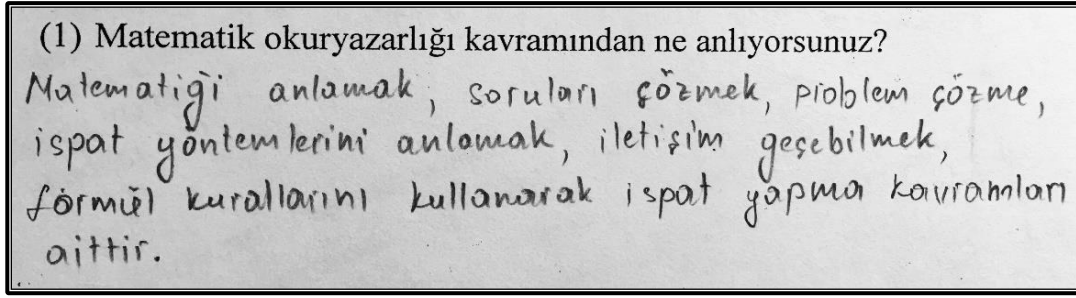 (1) Matematik okuryazarlığı kavramından ne anlıyorsunuz?
Matematiği anlamak, soruları çözmek, problem çözme,
ispat yöntemlerini anlamak, iletişim geçebilmek,
formül kurallarını kullanarak ispat yapma kavramları
aittir.